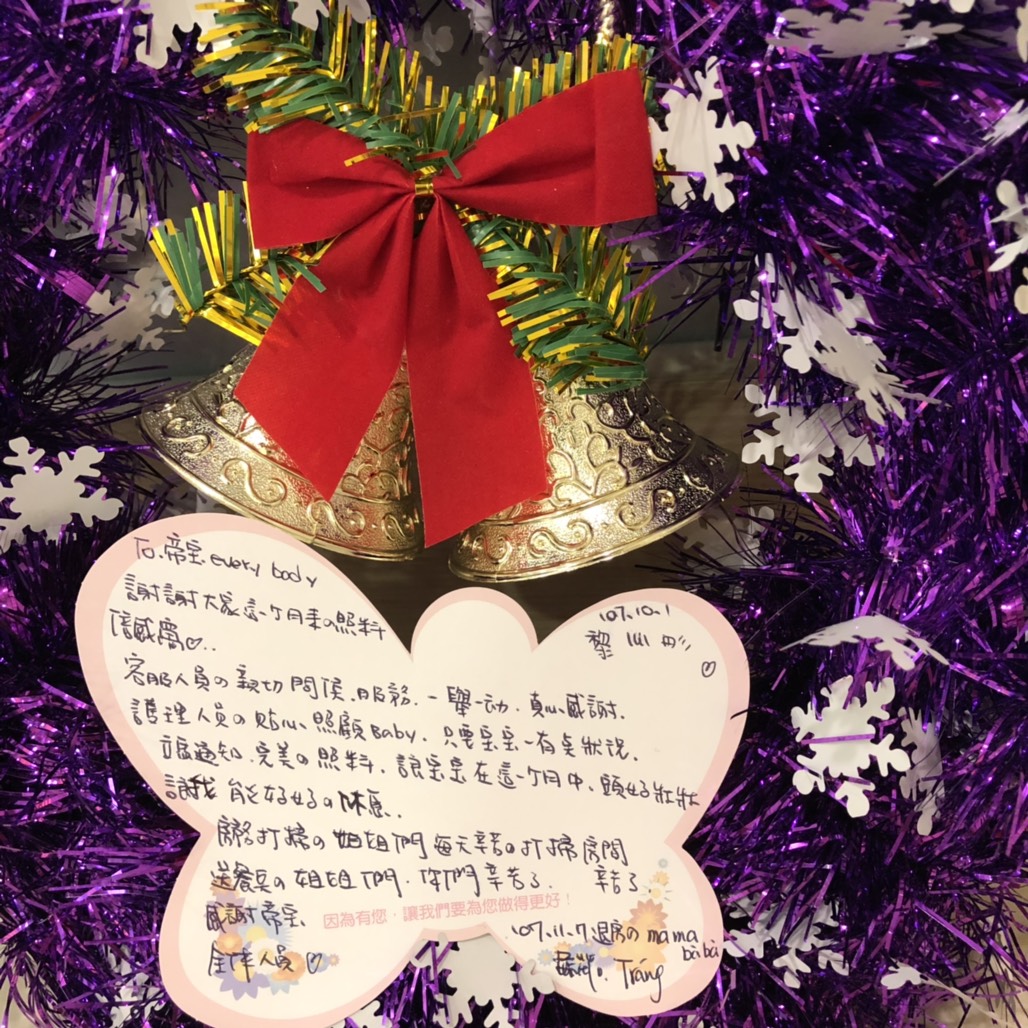 To.帝皇.every body
'07.10.1
謝謝大家這一ヶ月來の照料
黎
倍感窩♡..
♡
客服人員の親切問侯.服務.一舉一动.真心感謝.
護理人員の贴心.照顧Baby.只要宝宝一有臭狀況.
立座通知.完美の照料.讓宝宝在這一ヶ月中.頭好壯壯
讓我能好好の休息..
房務打掃の姐姐們每天辛苦の打掃房間
送餐桌の姐姐們.你們辛苦了. 辛苦了.
感謝帝皇.
因為有您‧讓我們要為您做得更好！
全体人員♡
'07.11.7退房の mama
bàbà
Trâng